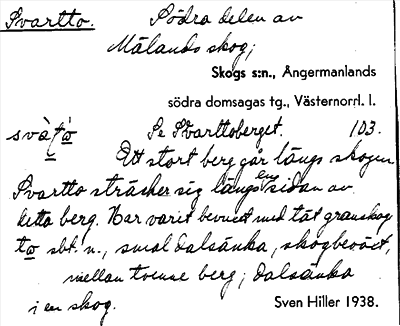 Svartto. Södra delen av
Mälands skog;
Skogs s:n., Ångermanlands
södra domsagas tg., Västernorrl. l.
Se Svarttoberget. 103.
Ett stort berg går längs skogen
Svartto sträcker sig längs ena sidan av
detta berg. Har varit bevuxet med tät granskog
to sbt. n., smal dalsänka, skogbeväxt,
mellan tvenne berg; dalsänka
i en skog. Sven Hiller 1938.